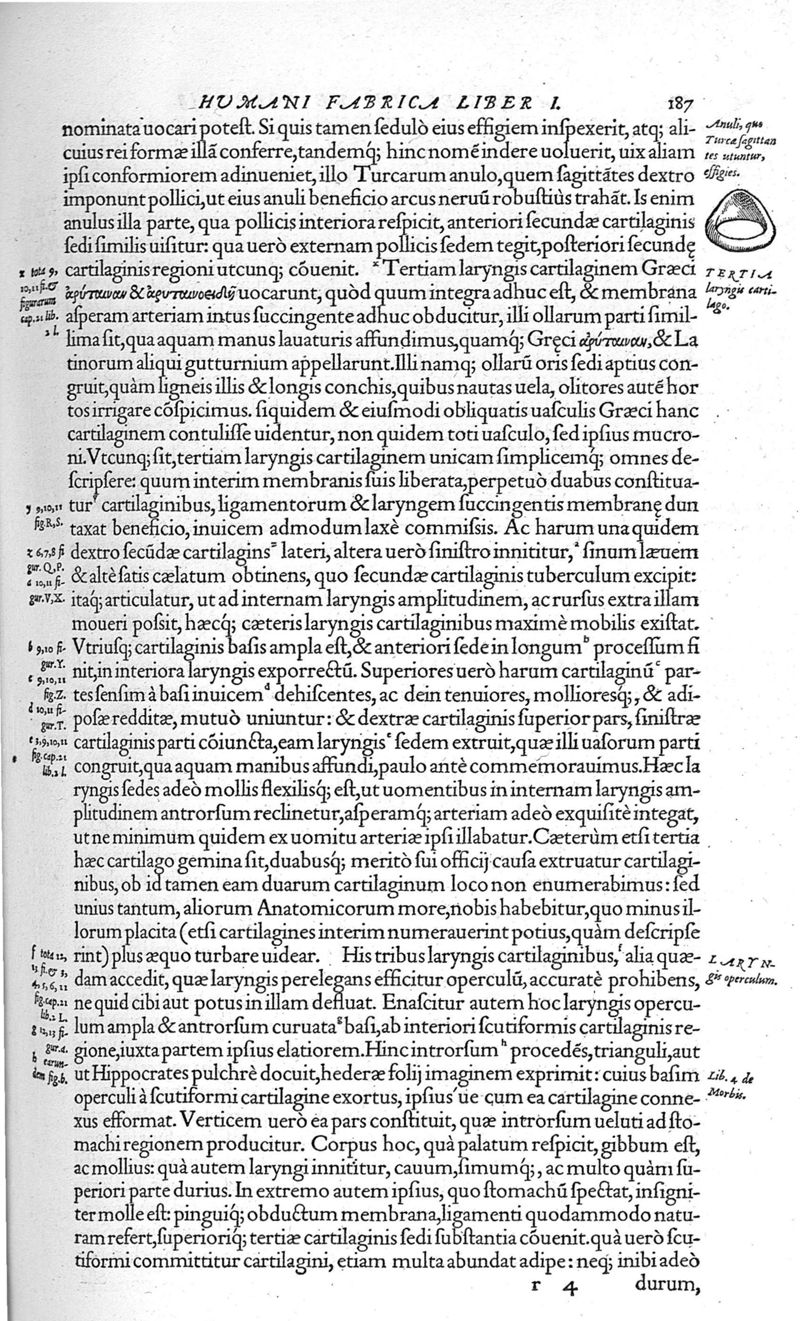 HVMANI FABRICA LIBER I. 187
nominata uocari potest. Si quis tamen sedulò eius effigiem inspexerit, atq; ali-
cuius rei formæ illã conferre, tandemq́; hinc nomẽ indere uoluerit, uix aliam
ipsi conformiorem adinueniet, illo Turcarum anulo, quem sagittãtes dextro
imponunt pollici, ut eius anuli beneficio arcus neruũ robustiùs trahãt. Is enim
anulus illa parte, qua pollicis interiora respicit, anteriori secundæ cartilaginis
sedi similis uisitur: qua uerò externam pollicis sedem tegit, posteriori secundę
cartilaginis regioni utcunq; cõuenit. ˣ Tertiam laryngis cartilaginem Græci
ἀρύταιναν & ἀρυταινοειδῆ uocarunt, quòd quum integra adhuc est, & membrana
asperam arteriam intus succingente adhuc obducitur, illi ollarum parti simil-
lima sit, qua aquam manus lauaturis affundimus, quamq́; Gręci ἀρύταιναν, & La
tinorum aliqui gutturnium appellarunt. Illi namq; ollarũ oris sedi aptius con-
gruit, quàm ligneis illis & longis conchis, quibus nautas uela, olitores autẽ hor
tos irrigare cõspicimus. siquidem & eiusmodi obliquatis uasculis Græci hanc
cartilaginem contulisse uidentur, non quidem toti uasculo, sed ipsius mucro-
ni. Vtcunq; sit, tertiam laryngis cartilaginem unicam simplicemq́; omnes de-
scripsere: quum interim membranis suis liberata, perpetuò duabus constitua-
turʸ cartilaginibus, ligamentorum & laryngem succingentis membranę dun
taxat beneficio, inuicem admodum laxè commissis. Ac harum una quidem
dextro secũdæ cartilaginsᶻ lateri, altera uerò sinistro innititur,ᵃ sinum læuem
& altè satis cælatum obtinens, quo secundæ cartilaginis tuberculum excipit:
itaq; articulatur, ut ad internam laryngis amplitudinem, ac rursus extra illam
moueri possit, hæcq; cæteris laryngis cartilaginibus maximè mobilis existat.
Vtriusq; cartilaginis basis ampla est, & anteriori sede in longumᵇ processum fi
nit, in interiora laryngis exporrectũ. Superiores uerò harum cartilaginũᶜ par-
tes sensim à basi inuicemᵈ dehiscentes, ac dein tenuiores, mollioresq́;, & adi-
posæ redditæ, mutuò uniuntur: & dextræ cartilaginis superior pars, sinistræ
cartilaginis parti cõiuncta, eam laryngisᵉ sedem extruit, quæ illi uasorum parti
congruit, qua aquam manibus affundi, paulo antè commemorauimus. Hæc la
ryngis sedes adeò mollis flexilisq́; est, ut uomentibus in internam laryngis am-
plitudinem antrorsum reclinetur, asperamq́; arteriam adeò exquisitè integat,
ut ne minimum quidem ex uomitu arteriæ ipsi illabatur. Cæterùm etsi tertia
hæc cartilago gemina sit, duabusq́; meritò sui officij causa extruatur cartilagi-
nibus, ob id tamen eam duarum cartilaginum loco non enumerabimus: sed
unius tantum, aliorum Anatomicorum more, nobis habebitur, quo minus il-
lorum placita (etsi cartilagines interim numerauerint potius, quàm descripse
rint) plus æquo turbare uidear. His tribus laryngis cartilaginibus,ᶠ alia quæ-
dam accedit, quæ laryngis perelegans efficitur operculũ, accuratè prohibens,
ne quid cibi aut potus in illam defluat. Enascitur autem hoc laryngis opercu-
lum ampla & antrorsum curuataᵍ basi, ab interiori scutiformis cartilaginis re-
gione, iuxta partem ipsius elatiorem. Hinc introrsumʰ procedẽs, trianguli, aut
ut Hippocrates pulchrè docuit, hederæ folij imaginem exprimit: cuius basim
operculi à scutiformi cartilagine exortus, ipsius ue cum ea cartilagine conne-
xus efformat. Verticem uerò ea pars constituit, quæ introrsum ueluti ad sto-
machi regionem producitur. Corpus hoc, quà palatum respicit, gibbum est,
ac mollius: quà autem laryngi innititur, cauum, simumq́;, ac multo quàm su-
periori parte durius. In extremo autem ipsius, quo stomachũ spectat, insigni-
ter molle est: pinguiq́; obductum membrana, ligamenti quodammodo natu-
ram refert, superioriq́; tertiæ cartilaginis sedi substantia cõuenit. quà uerò scu-
tiformi committitur cartilagini, etiam multa abundat adipe: neq; inibi adeò
r 4 durum,
Anuli, quo
Turcæ sagittan
tes utuntur,
effigies.
TERTIA
laryngis carti-
lago.
LARYN-
gis operculum.
Lib. 4 de
Morbis.
x tota 9,
10,11 fi. &
figurarum
cap. 21 lib.
2 l.
y 9,10,11
fig. R, S.
z 6,7,8 fi
gur. Q, P.
a 10,11 fi-
gur. V, X.
b 9,10 fi-
gur. Y.
c 9,10,11
fig. Z.
d 10,11 fi-
gur. T.
e 3,9,10,11
fig. cap. 21
lib. 2 l.
f tota 12,
13 fi. & 3,
4, 5, 6, 11
fig. cap. 21
lib. 2 L.
g 12,13 fi-
gur. a.
h earun-
dem fig. b.